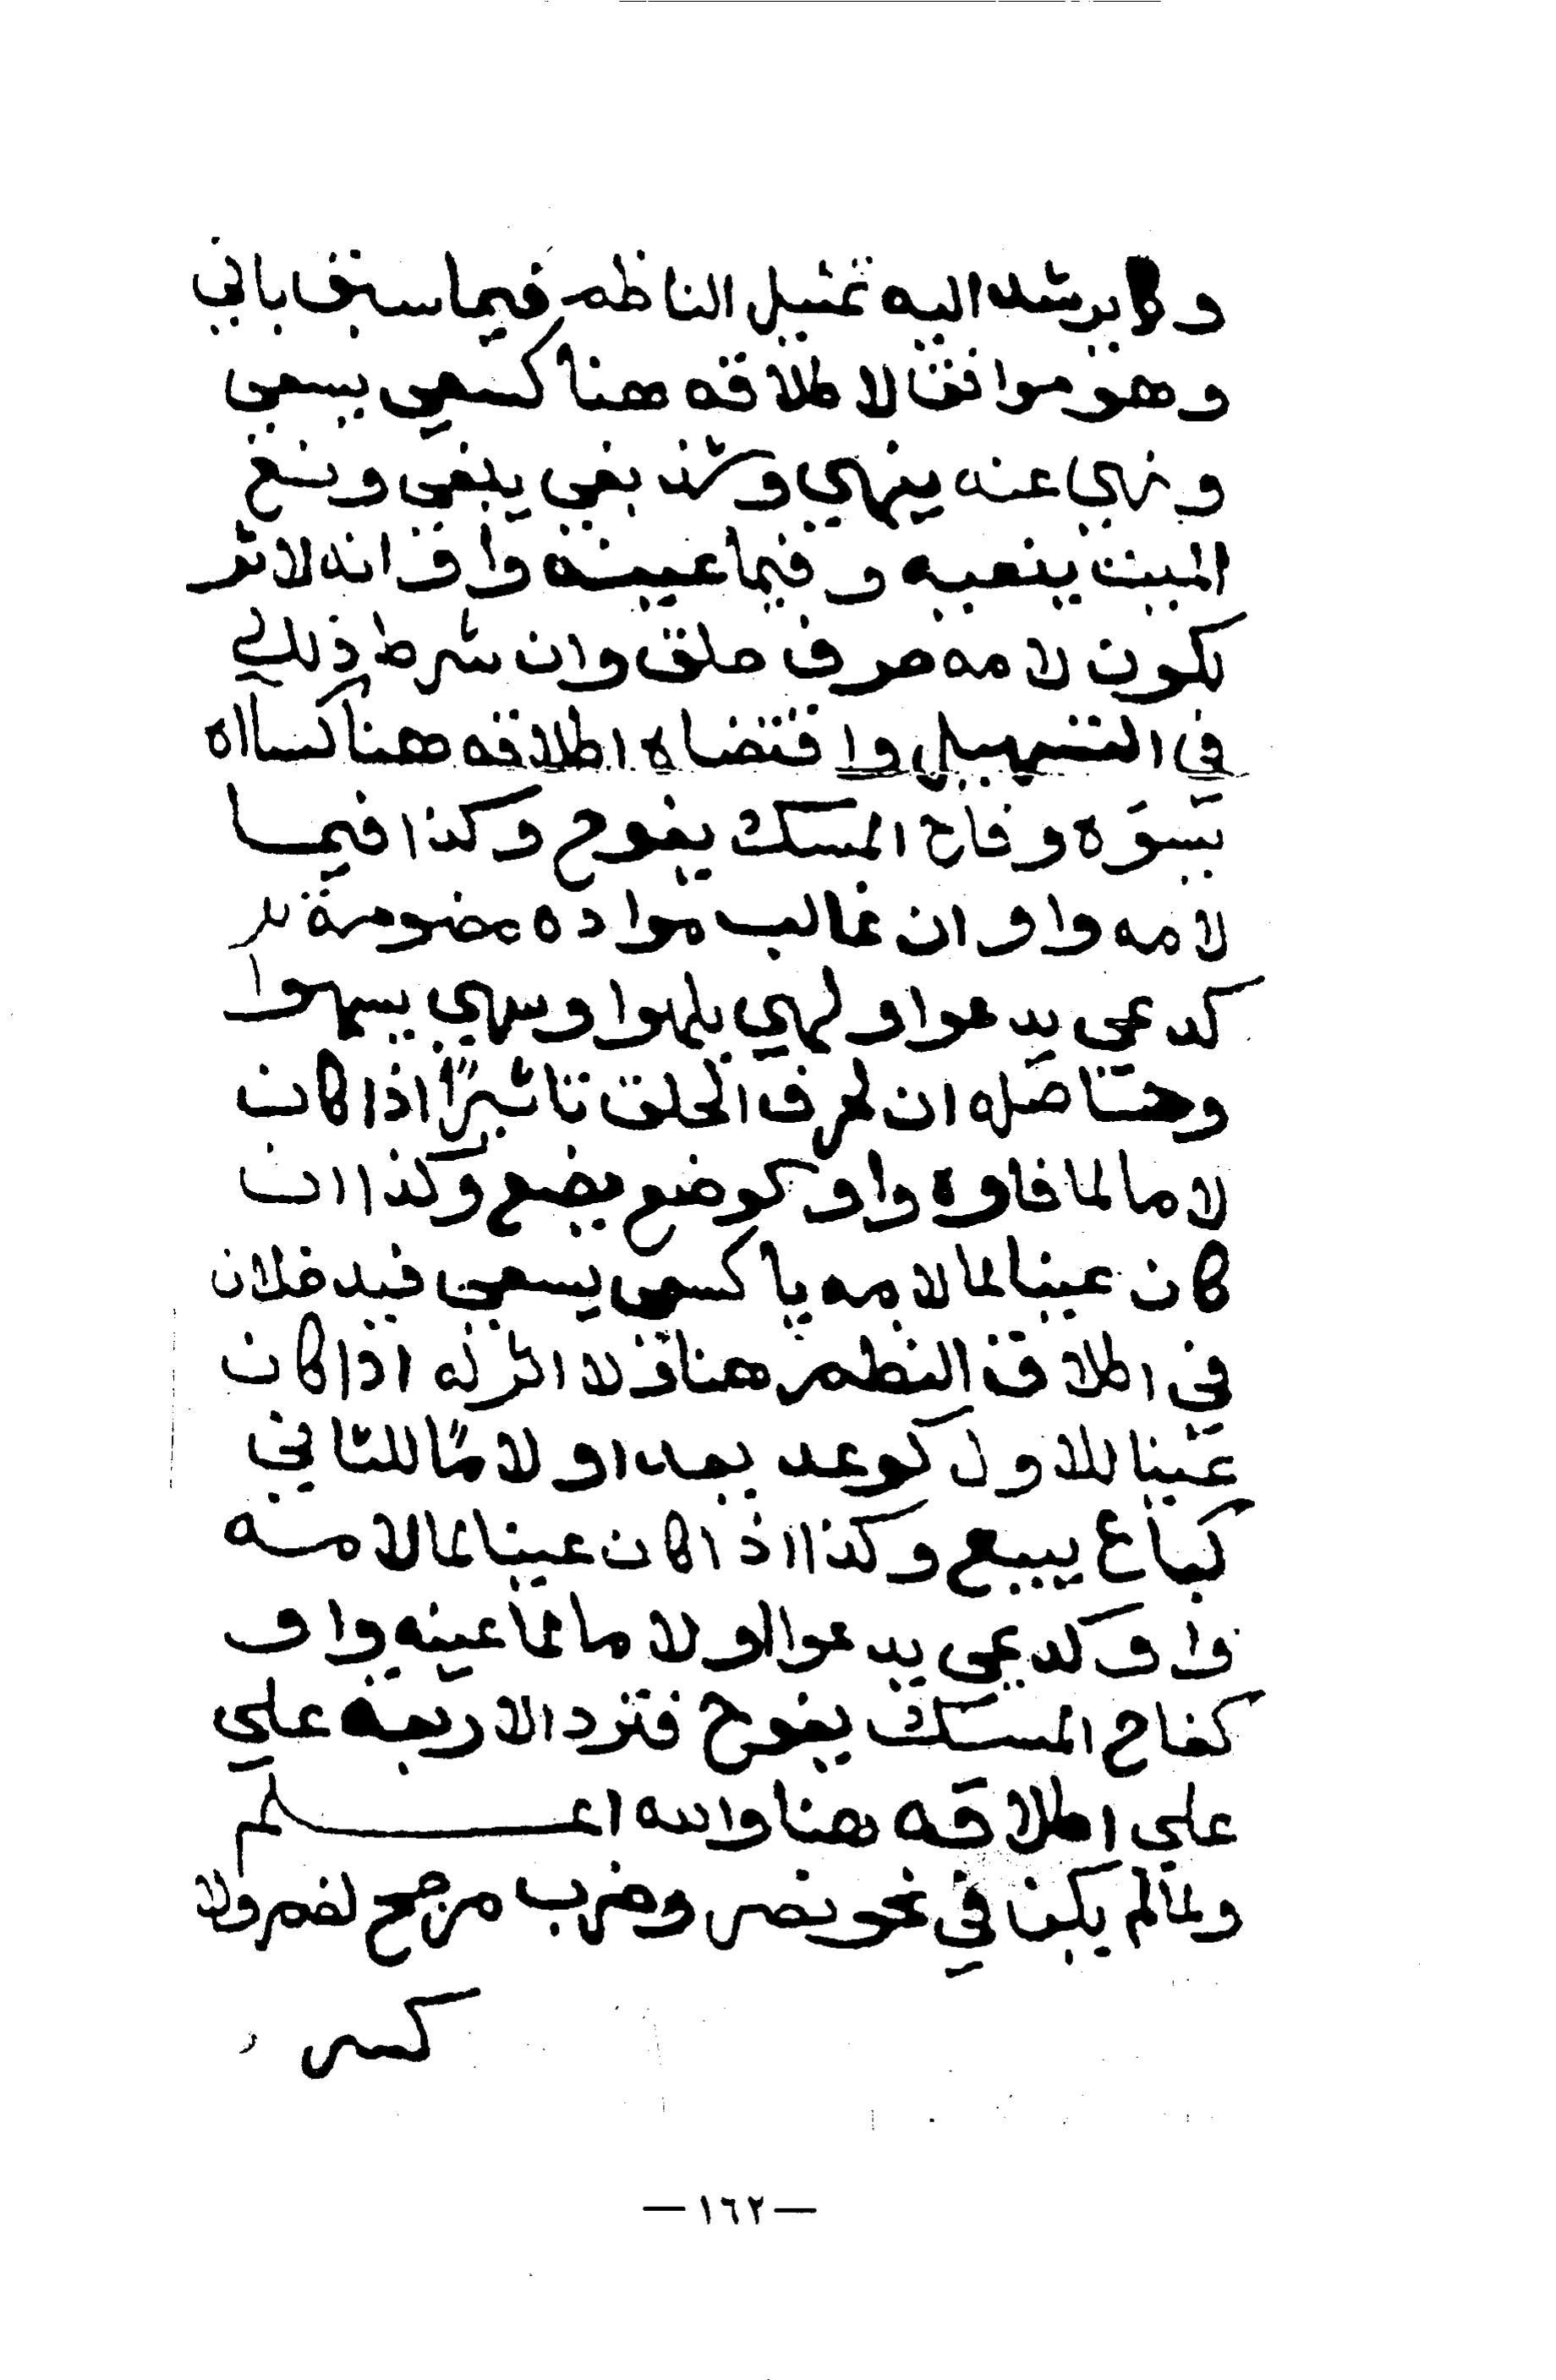 وكما يرشد اليه تمثيل الناظم فيما سبق بابي
وهو موافق لاطلاقه هنا كسعى يسعى
ونهى عنه ينهي وشذ بغى يبغى ونع
الميت ينعيه وفيما عينه واو انه لا اثر
لكون لامه حرف حلق وان شرط ذلك
في التسهيل واقتضاه اطلاقه هنا كساه
يسوه وفاح المسك يفوح وكذا فيما
لامه واو ان غالب مواده مضمومة
كدعى يدعوا ولهي يلهوا وسهي يسهوا
وحاصله ان لحرف الحلق تاثيرًا اذا كان
لاما لما فاوه واو كوضع يضع وكذا ان
كان عينا لما لامه يا كسعى يسعى فيد خلان
في اطلاق النظم هنا ولا اثر له اذا كان
عينا للاول كوعد يعد او لامًا للثاني
كباع يبيع وكذا اذا كان عينا لما لامه
واو كدعى يدعوا او لاما لما عينه واو
كفاح المسك يفوح فترد الاربعة على
على اطلاقه هنا والله اعلم
ولما لم يكن في نحو نصر وضرب مرجح لضم ولا
كسر
— ١٦٢ —